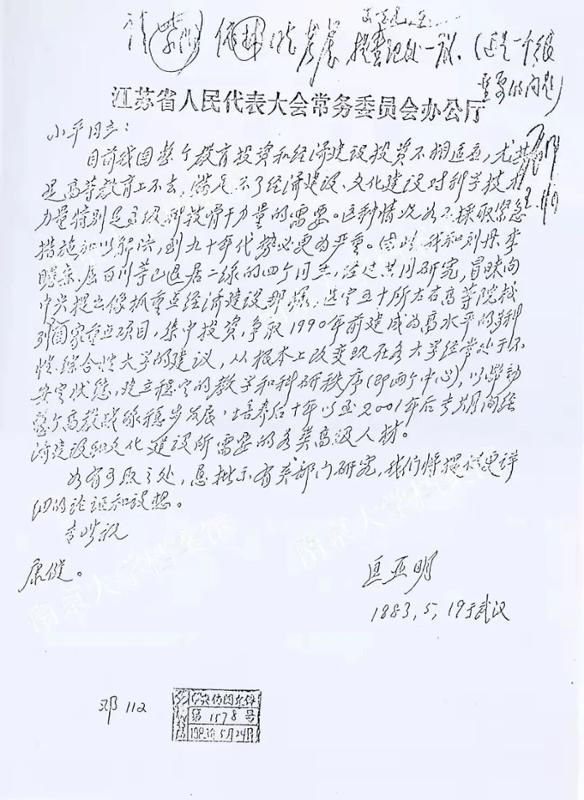 请
江苏省人民代表大会常务委员会办公厅
小平同志：
目前我国整个教育投资和经济建设投资不相适应，尤其
是高等教育上不去，满足不了经济建设、文化建设对科学技术
力量特别是高级科技骨干力量的需要。这种情况如不采取紧急
措施加以解决，到九十年代势必更为严重。因此，我和刘丹、李
曙森、屈伯川等几位居二线的四个同志，经过共同研究，冒昧向
中央提出像抓重点经济建设那样，选定五十所左右高等院校
列国家重点项目，集中投资，争取1990年前建成为高水平的
性、综合性大学的建议，从根本上改变现在各大学经常处于不
安定状态，建立稳定的教学和科研秩序（即两个中心），以带动
整个高教战线稳步发展，培养后十年以至2001年后专期间经
济建设和文化建设所需要的各类高级人材。
如有可取之处，恳批示有关部门研究，我们将提供更详
细的论证和设想。
专此 祝
康健。
匡亚明
1983，5，19于武汉
邓112
第1578号
1983年5月24日
南京大学档案馆